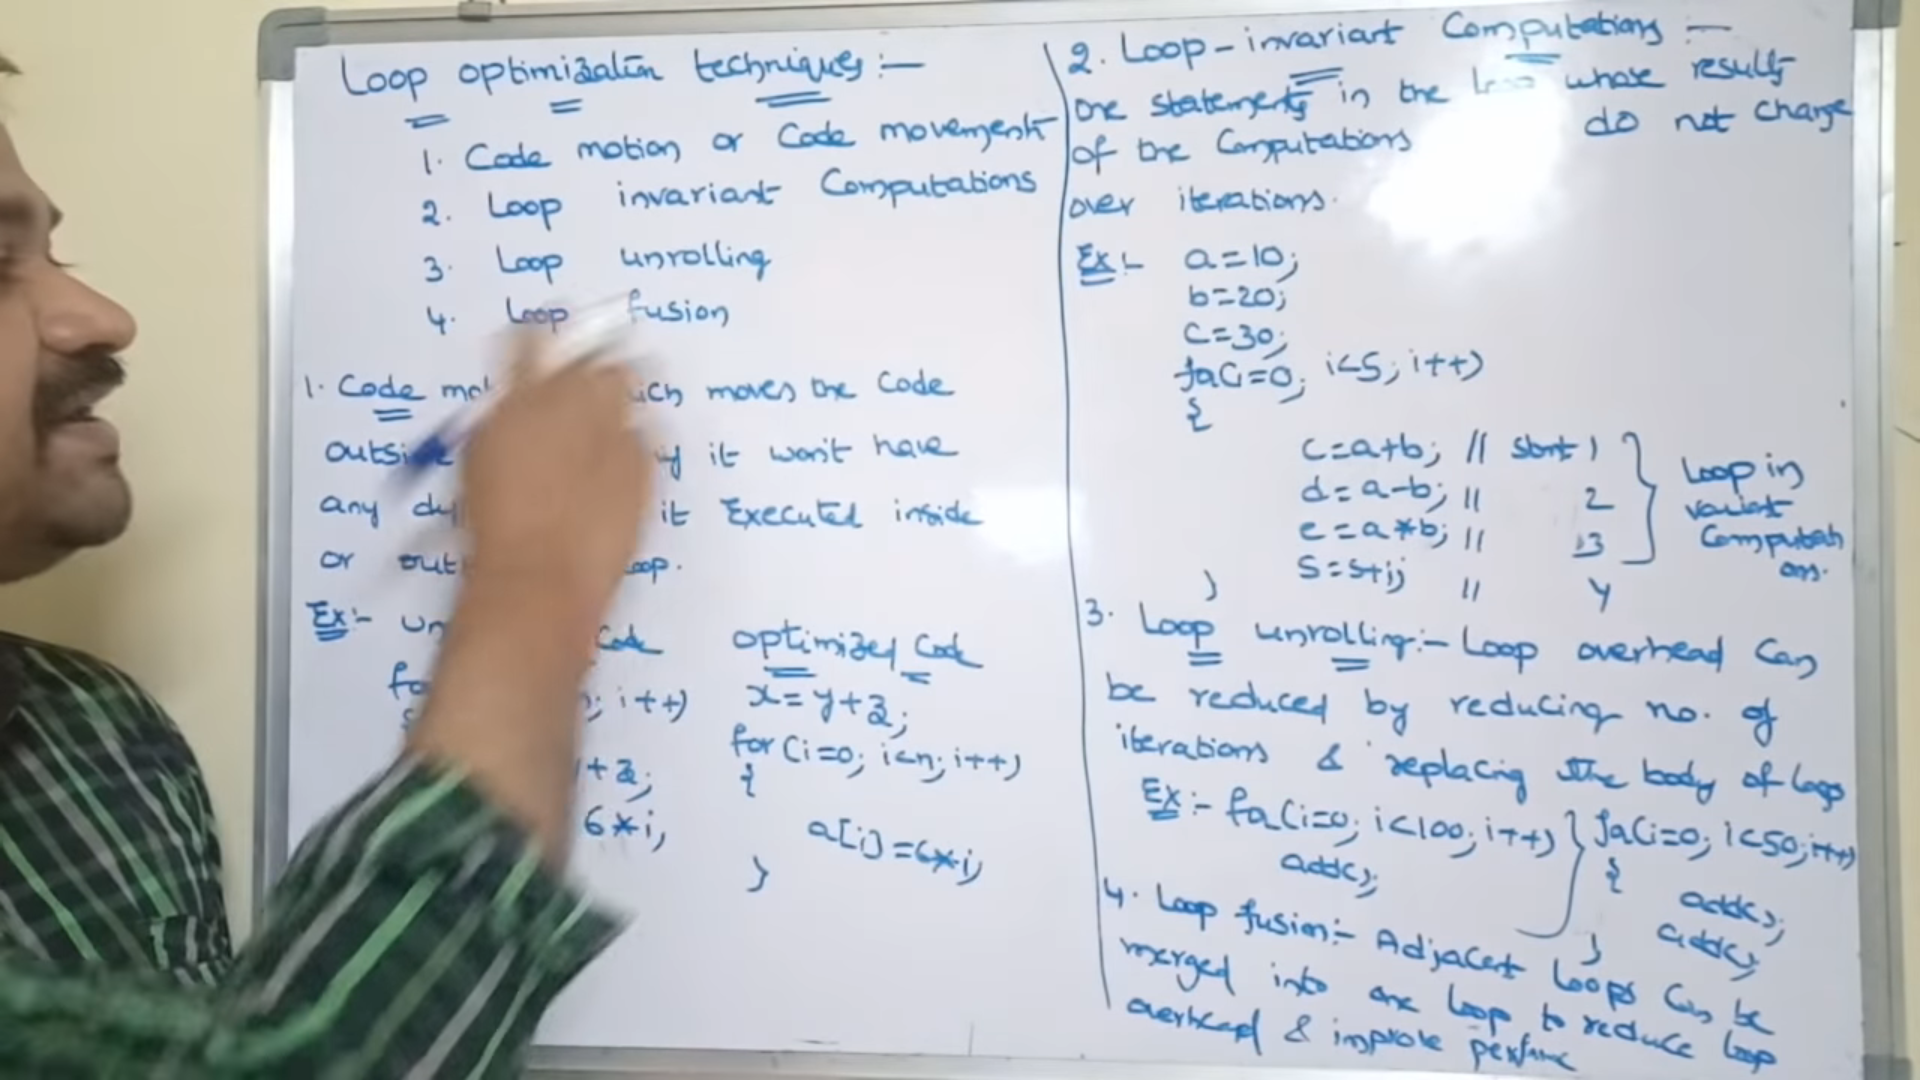 Loop optimization techniques :-
1. Code motion or Code movement
2. Loop invariant Computations
3. Loop unrolling
4. Loop fusion
1. Code moves the Code
it won't have
any it Executed inside
or
Ex:- Code optimized Code
i++) x=y+z;
+z; for(i=0; i<n; i++)
{
6*i; a[i]=6*i;
}
2. Loop-invariant Computations :-
the statements in the whose results
of the Computations do not change
over iterations.
Ex:- a=10;
b=20;
c=30;
for(i=0; i<5; i++)
{
c=a+b; // stmt 1
d=a-b; // 2
e=a*b; // 3
s=s+i; // 4
}
Loop in
variant
Computati
ons.
3. Loop unrolling:- Loop overhead Can
be reduced by reducing no. of
iterations & replacing the body of loop
Ex:- for(i=0; i<100; i++) } for(i=0; i<50; i++)
add(); {
add();
add();
}
4. Loop fusion:- Adjacent Loops Can be
merged into one loop to reduce loop
overhead & improve